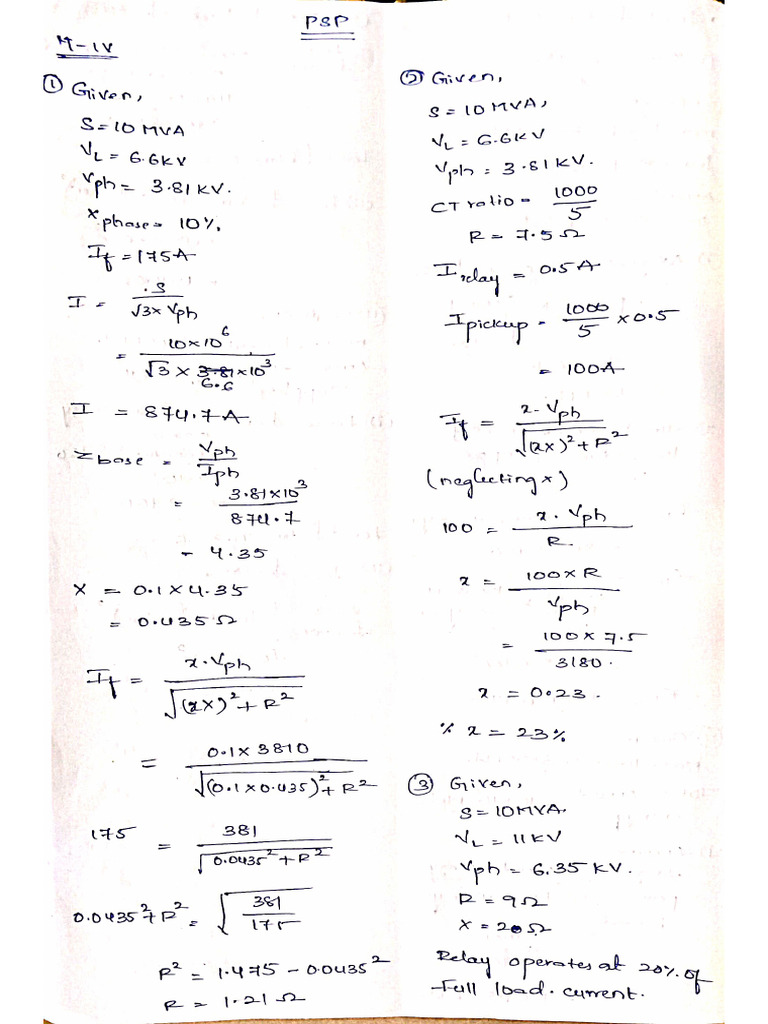 PSP
M-IV
① Given,
S = 10 MVA
V_L = 6.6KV
Vph = 3.81 KV.
X phase = 10%.
I_f = 175A
I = S / √3 × Vph
= 10×10^6 / √3 × 3.81 ×10^3
6.6
I = 874.7 A
Z base = Vph / Iph
= 3.81×10^3 / 874.7
= 4.35
X = 0.1 × 4.35
= 0.435 Ω
I_f = x.Vph / √(xX)^2 + R^2
= 0.1 × 3810 / √(0.1×0.435)^2 + R^2
175 = 381 / √0.0435^2 + R^2
0.0435^2 + R^2 = √381/175
R^2 = 1.475 - 0.0435^2
R = 1.21 Ω
② Given,
S = 10 MVA,
V_L = 6.6KV
Vph = 3.81 KV.
CT ratio = 1000/5
R = 7.5 Ω
I relay = 0.5 A
I pickup = 1000/5 × 0.5
= 100A
I_f = x.Vph / √(xX)^2 + R^2
(neglecting x)
100 = x.Vph / R.
x = 100×R / Vph
= 100 × 7.5 / 3180.
x = 0.23.
% x = 23%
③ Given,
S = 10MVA.
V_L = 11KV
Vph = 6.35 KV.
R = 9Ω
X = 20Ω
Relay operates at 20% of
Full load. current.